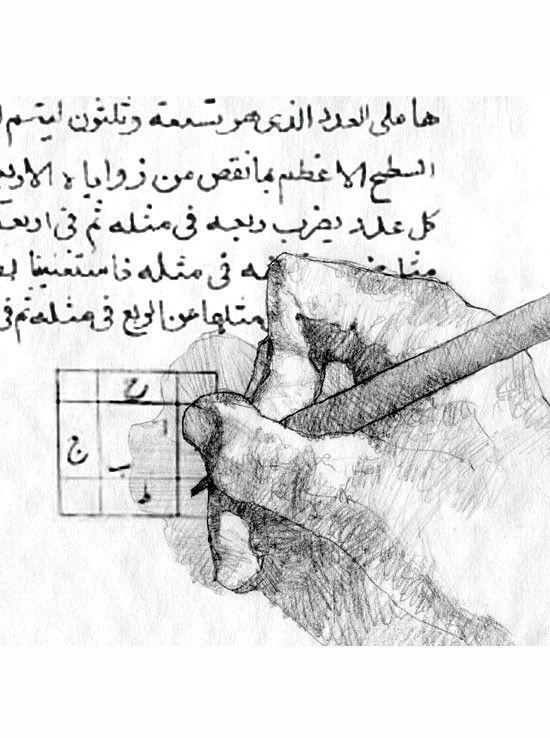 ها على العدد الذى هو تسعة وثلثون ليتم
السطح الاعظم بما نقص من زواياه
كل عدد يضرب ربعه فى مثله ثم فى اربعة
فى مثله فاستغنينا
مثلها عن الربع فى مثله ثم فى
ح
ا
ج
ب
ط